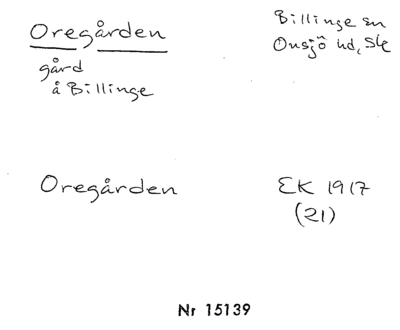 Oregården
Billinge sn
Onsjö hd, Sk
gård
å Billinge
Oregården
EK 1917
(21)
Nr 15139